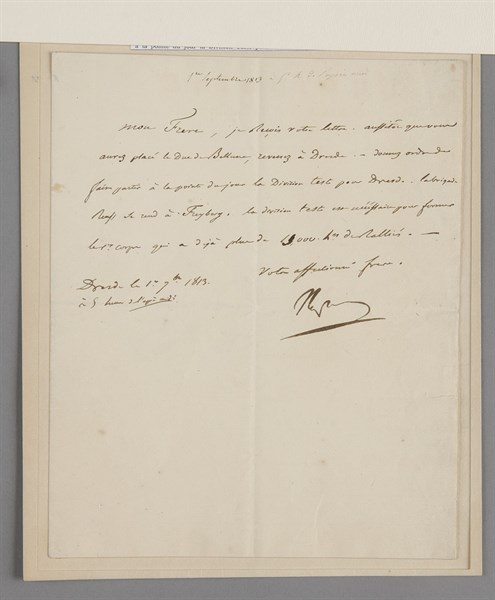 1er Septembre 1813 à 5h de l'après midi
Mon Frere, je Reçois votre lettre. aussitôt que vous
aurez placé le Duc de Bellune, revenez à Dresde. – donnez ordre de
faire partir à la pointe du jour la Division teste pour Dresde. la brigade
Reuss se rend à Freyberg. la division teste est nécessaire pour former
le 1er corps qui a déjà plus de 000 hes de Ralliés. —
Votre affectionné frere.
Dresde le 1er 7bre 1813.
à 5 heures